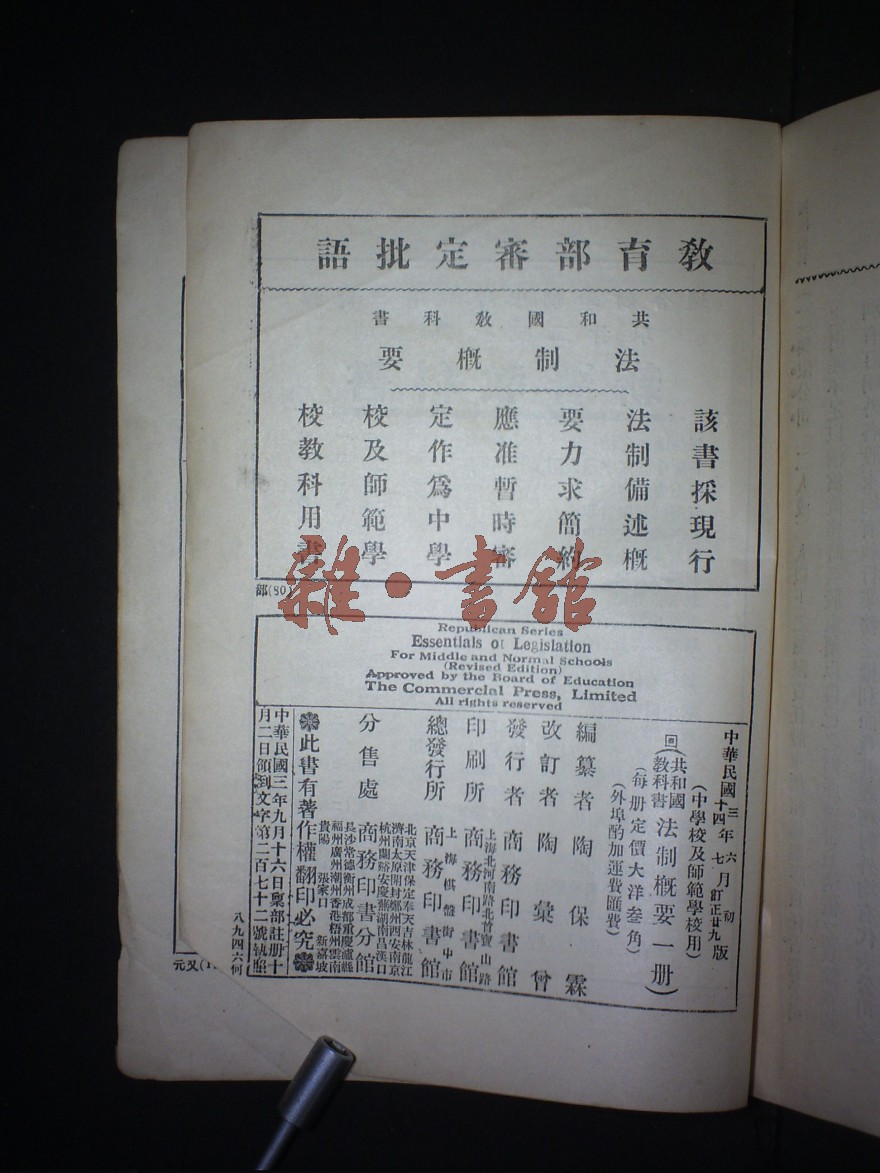 教育部審定批語
共和國教科書
法制概要
該書採現行
法制備述概
要力求簡約
應准暫時審
定作爲中學
校及師範學
校教科用書
部(80)
雜·書館
Republican Series
Essentials of Legislation
For Middle and Normal Schools
(Revised Edition)
Approved by the Board of Education
The Commercial Press, Limited
All rights reserved
中華民國三年六月初版
十四年七月訂正廿九版
(中學校及師範學校用)
共和國教科書法制概要一册)
(每册定價大洋叁角)
(外埠酌加運費匯費)
編纂者陶保霖
改訂者陶彙曾
發行者商務印書館
上海北河南路北首寶山路
印刷所商務印書館
上海棋盤街中市
總發行所商務印書館
北京天津保定奉天吉林龍江
濟南太原開封鄭州西安南京
杭州蘭谿安慶蕪湖南昌漢口
分售處商務印書分館
長沙常德衡州成都重慶瀘縣
福州廣州潮州香港梧州雲南
貴陽張家口新嘉坡
此書有著作權翻印必究
中華民國三年九月十六日稟部註册十
月二日領到文字第二百七十二號執照
八九四六何
元又(1